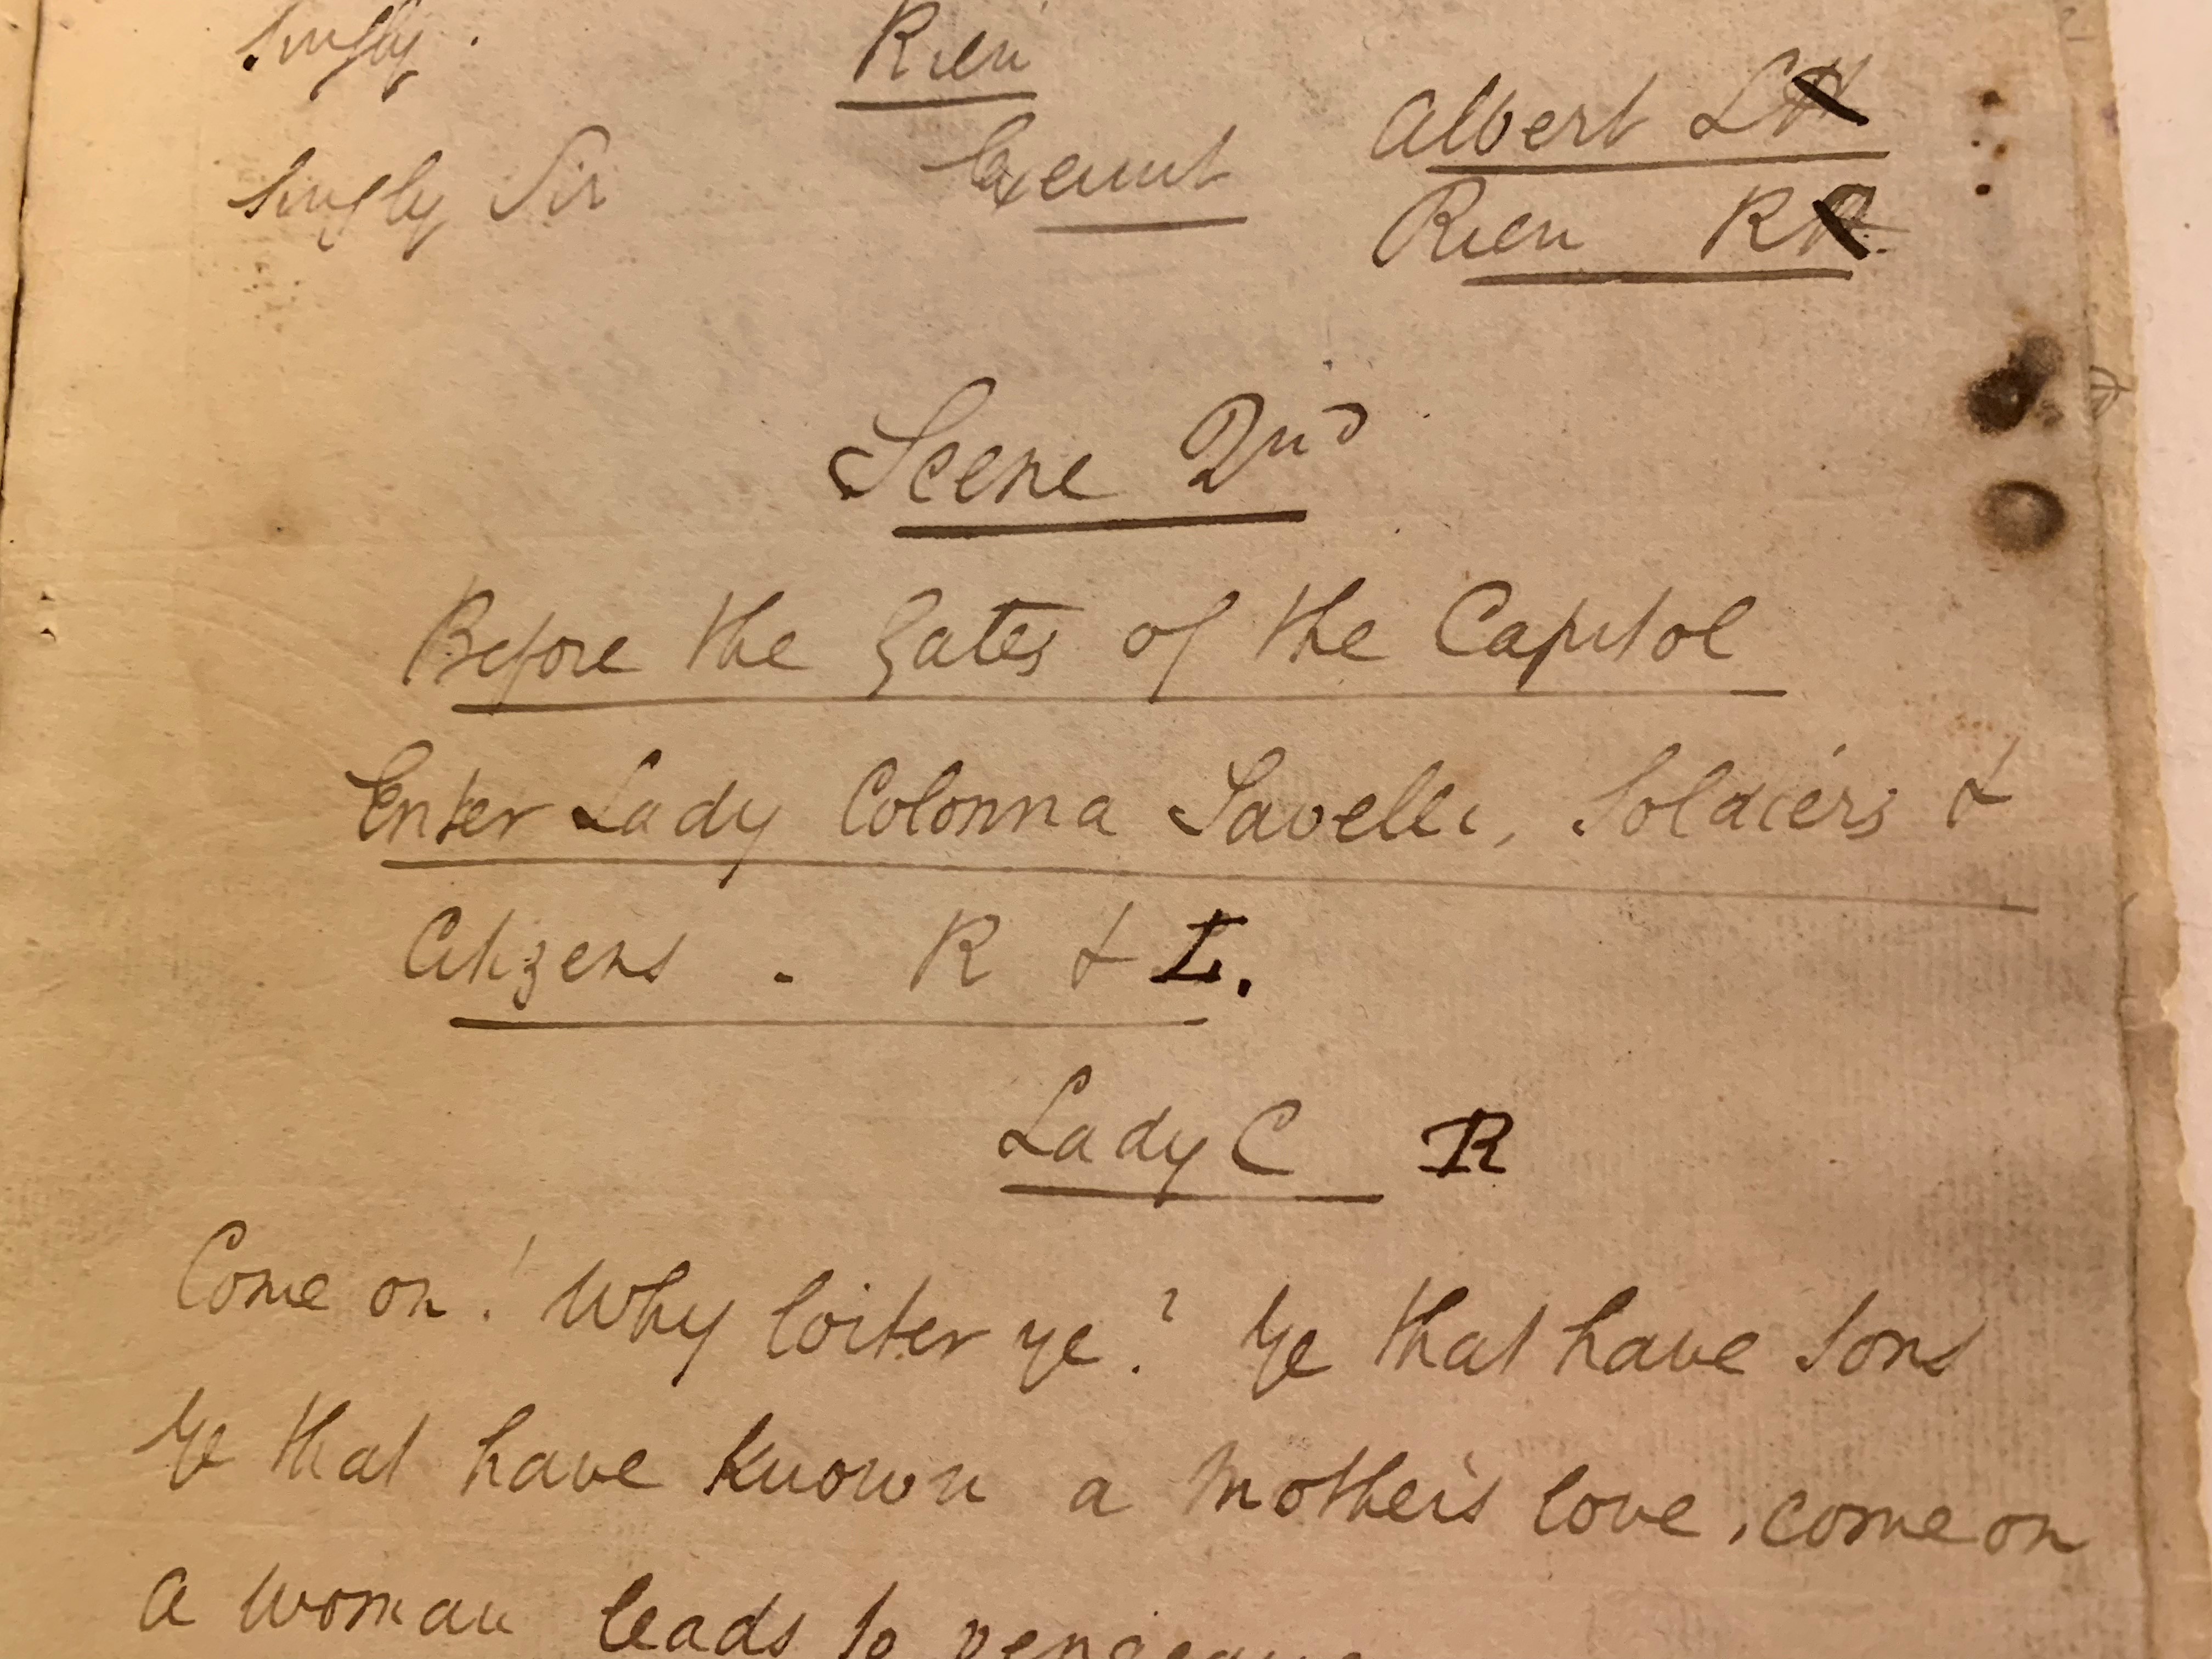 Singly. Rien
Albert L
Singly Sir Exeunt
Rien R
Scene 2nd
Before the Gates of the Capitol
Enter Lady Colonna Savelli, Soldiers &
Citizens - R & L.
Lady C R
Come on! Why loiter ye? Ye that have sons
Ye that have known a mother's love, come on
A woman leads to